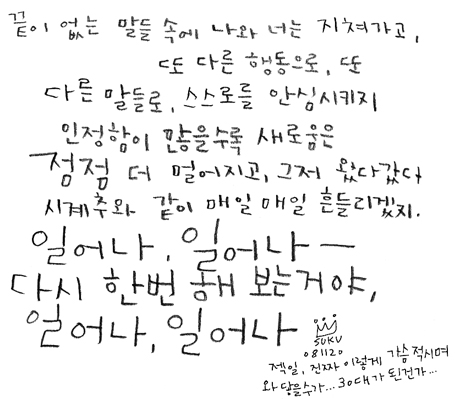 끝이 없는 말들 속에 나와 너는 지쳐가고,
또 다른 행동으로, 또
다른 말들로, 스스로를 안심시키지
인정함이 많을수록 새로움은
점점 더 멀어지고, 그저 왔다갔다
시계추와 같이 매일 매일 흔들리겠지.
일어나, 일어나 —
다시 한번 해 보는거야,
일어나, 일어나
SUKU
081120
젝일, 진짜 이렇게 가슴 적시며
와 닿을수가... 30대가 된건가...